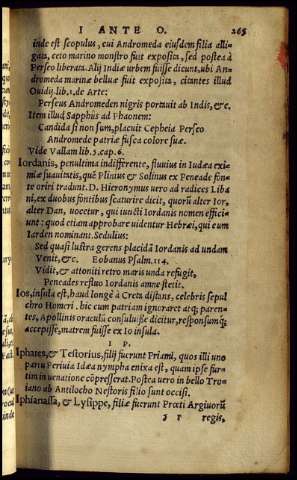 I ANTE O. 265
inde est scopulus, cui Andromeda eiusdem filia alli-
gata, ceto marino monstro fuit exposita, sed postea à
Perseo liberata. Alij Indiæ urbem fuisse dicunt, ubi An-
dromeda marinæ belluæ fuit exposita, citantes illud
Ouidij. lib. 1. de Arte:
Perseus Andromeden nigris portauit ab Indis, &c.
Item illud Sapphûs ad Phaonem:
Candida si non sum, placuit Cepheia Perseo
Andromede patriæ fusca colore suæ.
Vide Vallam lib. 5. cap. 6.
Iordanis, penultima indifferente, fluuius in Iudæa exi-
miæ suauitatis, què Plinius & Solinus ex Peneade fon-
te oriri tradunt. D. Hieronymus uero ad radices Liba
ni, ex duobus fontibus scaturire dicit, quorũ alter Ior,
alter Dan, uocetur, qui iuncti Iordanis nomen effici-
unt: quod etiam approbare uidentur Hebræi, qui eum
Iarden nominant. Sedulius:
Sed quasi lustra gerens placidã Iordanis ad undam
Venit, &c. Eobanus Psalm. 114.
Vidit, & attoniti retro maris unda refugit,
Peneades refluo Iordanis amne stetit.
Ios, insula est, haud longè à Creta distans, celebris sepul
chro Homeri. hic cum patriam ignoraret atq; paren-
tes, Apollinis oraculũ consuluisse dicitur, responsumq;
accepisse, matrem fuisse ex Io insula.
I P.
Iphates, & Testorius, filij fuerunt Priami, quos illi une
parui Peruia Idæa nympha enixa est, quam ipse fur-
tim in uenatione cõpresserat. Postea uero in bello Tro
iano ab Antilocho Nestoris filio sunt occisi.
Iphianassa, & Lysippe, filiæ fuerunt Prœti Argiuorũ
regis,